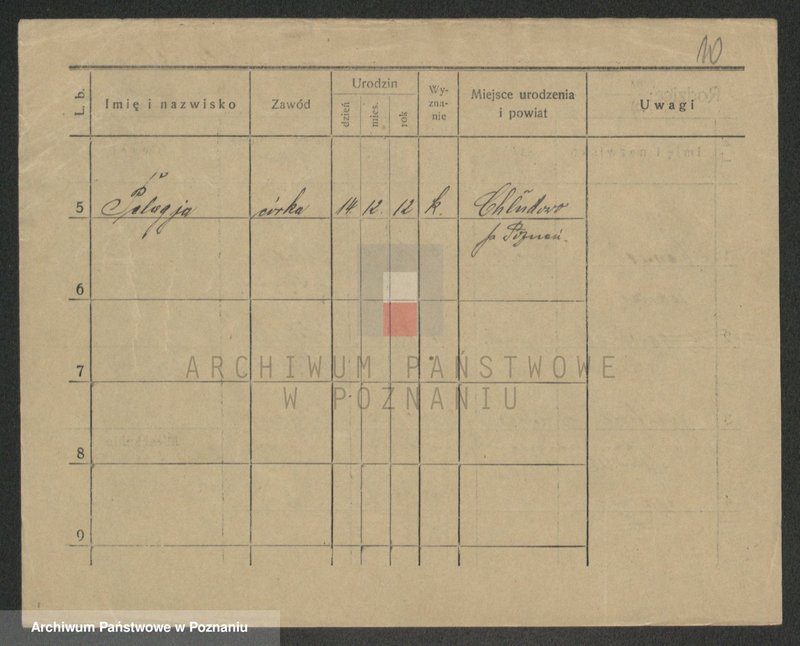 10
L. b.
Imię i nazwisko
Zawód
Urodzin
dzień
mies.
rok
Wy-
zna-
nie
Miejsce urodzenia
i powiat
Uwagi
5 Pelagja córka 14 12. 12 k. Chludowo
p. Poznań.
6
7
8
9
ARCHIWUM PAŃSTWOWE
W POZNANIU
Archiwum Państwowe w Poznaniu